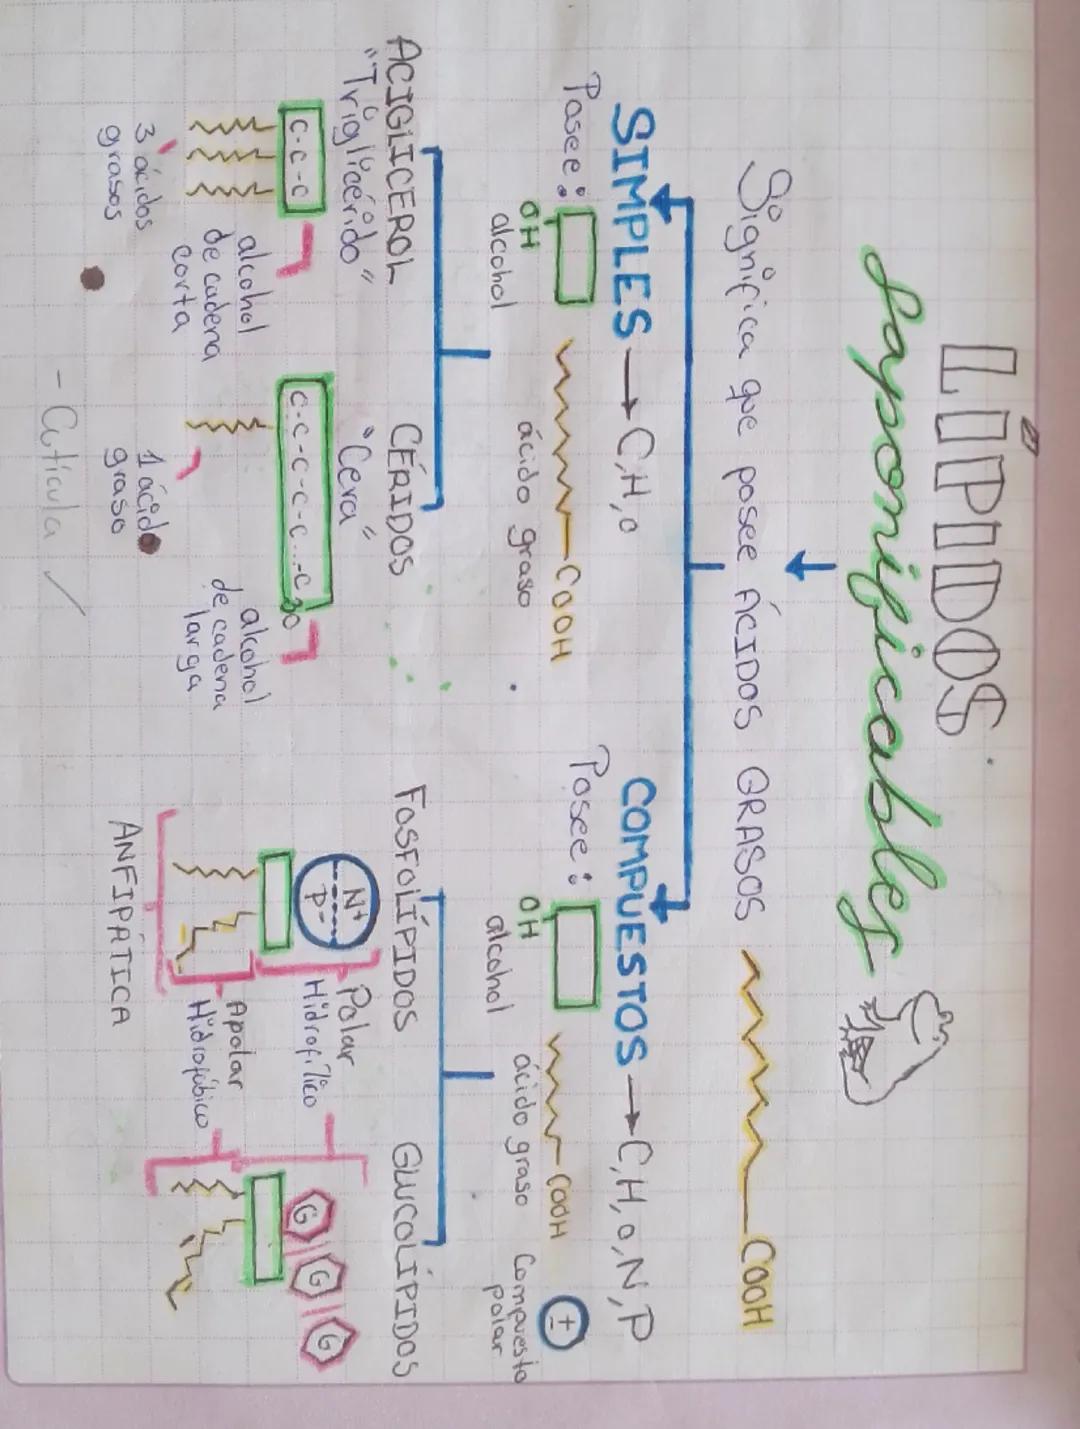 LÍPIDOS
Saponificables
Significa que posee ÁCIDOS GRASOS
COOH
SIMPLES → C,H,O
Posee:
OH
alcohol
COOH
ácido graso
ACIGLICEROL
"Triglicérido"
C-C-C
3 ácidos
grasos
alcohol
de cadena
corta
CÉRIDOS
"Cera"
C-C-C-C-C...-C30
1 ácido
graso
alcohol
de cadena
larga
- Cutícula ✓
COMPUESTOS → C,H,O,N,P
Posee:
OH
alcohol
COOH
ácido graso
±
Compuesto
polar
FOSFOLÍPIDOS
N+
P-
Polar
Hidrofílico
Apolar
Hidrofóbico
ANFIPÁTICA
GLUCOLÍPIDOS
G G G